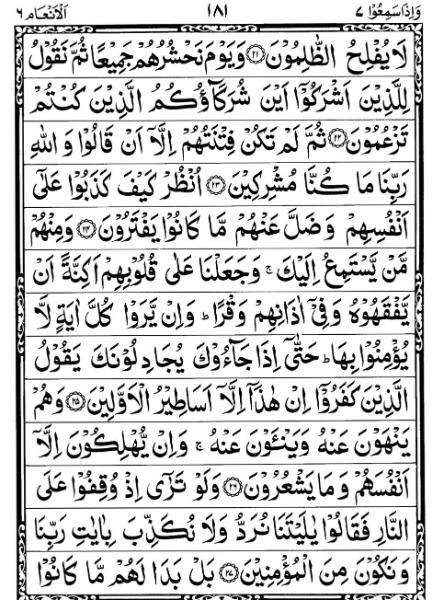 وَاِذَاسَمِعُوْا ٧ ١٨١ اَلْاَنْعَام ٦
لَا يُفْلِحُ الظّٰلِمُوْنَ ۝٢١ وَيَوْمَ نَحْشُرُهُمْ جَمِيْعًا ثُمَّ نَقُوْلُ
لِلَّذِيْنَ اَشْرَكُوْۤا اَيْنَ شُرَكَآؤُكُمُ الَّذِيْنَ كُنْتُمْ
تَزْعُمُوْنَ ۝٢٢ ثُمَّ لَمْ تَكُنْ فِتْنَتُهُمْ اِلَّاۤ اَنْ قَالُوْا وَاللّٰهِ
رَبِّنَا مَا كُنَّا مُشْرِكِيْنَ ۝٢٣ اُنْظُرْ كَيْفَ كَذَبُوْا عَلٰۤى
اَنْفُسِهِمْ وَضَلَّ عَنْهُمْ مَّا كَانُوْا يَفْتَرُوْنَ ۝٢٤ وَمِنْهُمْ
مَّنْ يَّسْتَمِعُ اِلَيْكَ ۚ وَجَعَلْنَا عَلٰى قُلُوْبِهِمْ اَكِنَّةً اَنْ
يَّفْقَهُوْهُ وَفِيْۤ اٰذَانِهِمْ وَقْرًا ؕ وَاِنْ يَّرَوْا كُلَّ اٰيَةٍ لَّا
يُؤْمِنُوْا بِهَا ؕ حَتّٰۤى اِذَا جَآءُوْكَ يُجَادِلُوْنَكَ يَقُوْلُ
الَّذِيْنَ كَفَرُوْۤا اِنْ هٰذَاۤ اِلَّاۤ اَسَاطِيْرُ الْاَوَّلِيْنَ ۝٢٥ وَهُمْ
يَنْهَوْنَ عَنْهُ وَيَنْـَٔوْنَ عَنْهُ ۚ وَاِنْ يُّهْلِكُوْنَ اِلَّاۤ
اَنْفُسَهُمْ وَمَا يَشْعُرُوْنَ ۝٢٦ وَلَوْ تَرٰۤى اِذْ وُقِفُوْا عَلَى
النَّارِ فَقَالُوْا يٰلَيْتَنَا نُرَدُّ وَلَا نُكَذِّبَ بِاٰيٰتِ رَبِّنَا
وَنَكُوْنَ مِنَ الْمُؤْمِنِيْنَ ۝٢٧ بَلْ بَدَا لَهُمْ مَّا كَانُوْا